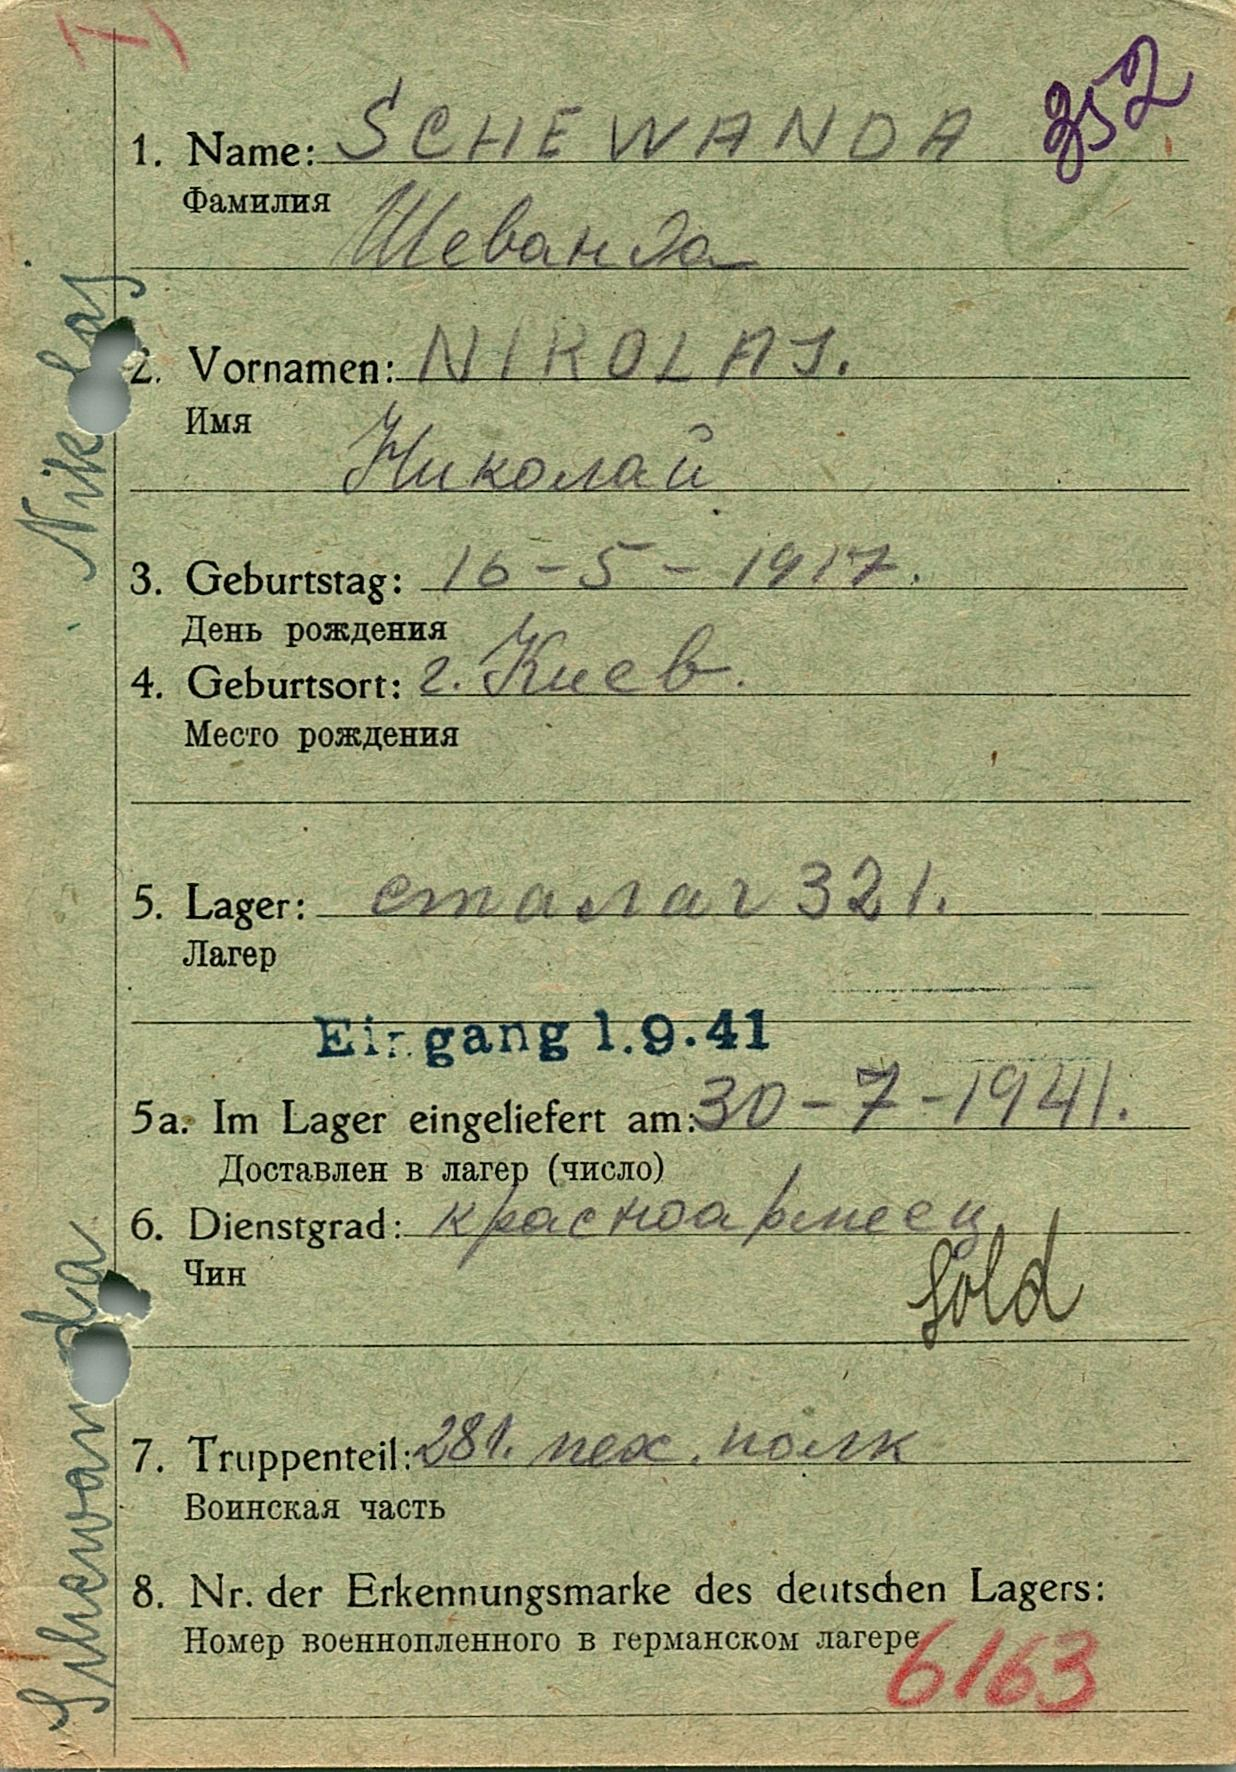 352
1. Name: SCHEWANDA
Фамилия
Шеванда
2. Vornamen: NIKOLAJ.
Имя
Николай
3. Geburtstag: 16-5-1917.
День рождения
4. Geburtsort: г. Киев.
Место рождения
5. Lager: сталаг 321.
Лагер
Eingang 1.9.41
5a. Im Lager eingeliefert am: 30-7-1941.
Доставлен в лагер (число)
6. Dienstgrad: красноармеец
Чин
Sold
7. Truppenteil: 281. пех. полк
Воинская часть
8. Nr. der Erkennungsmarke des deutschen Lagers:
Номер военнопленного в германском лагере
6163
Schewanda Nikolaj